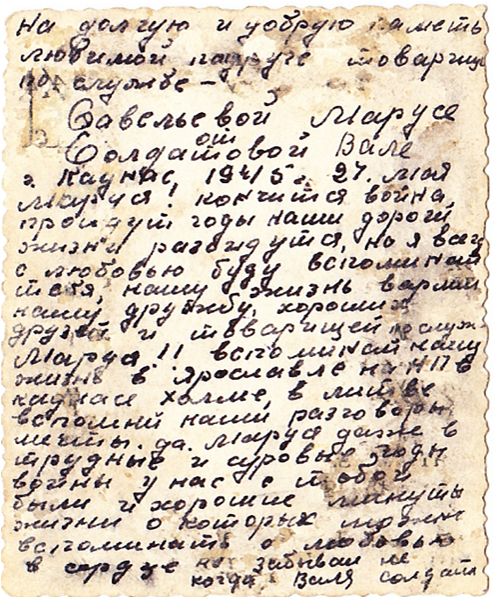 на долгую и добрую паметь
любимой падруге товарищу
по службе –
Савельевой Марусе
от
Солдатовой Вале
г. Каунас, 1945 г. 27. мая
Маруся! кончится война,
пройдут годы наши дороги
жизни разойдутся, но я всегд
с любовью буду вспоминат
тебя, нашу жизнь в армии
нашу дружбу, хороших
друзей и товарищей по служ
Маруся!! вспоминай нашу
жизнь в Ярославле на НП в
каунасе холме, в литве
вспомни наши разговоры
мечты. да. Маруся даже в
трудные и суровые годы
войны у нас с тобой
были и хорошие минуты
жизни о которых можно
вспоминать с любовью
в сердце не забывай не
когда Валя солдат